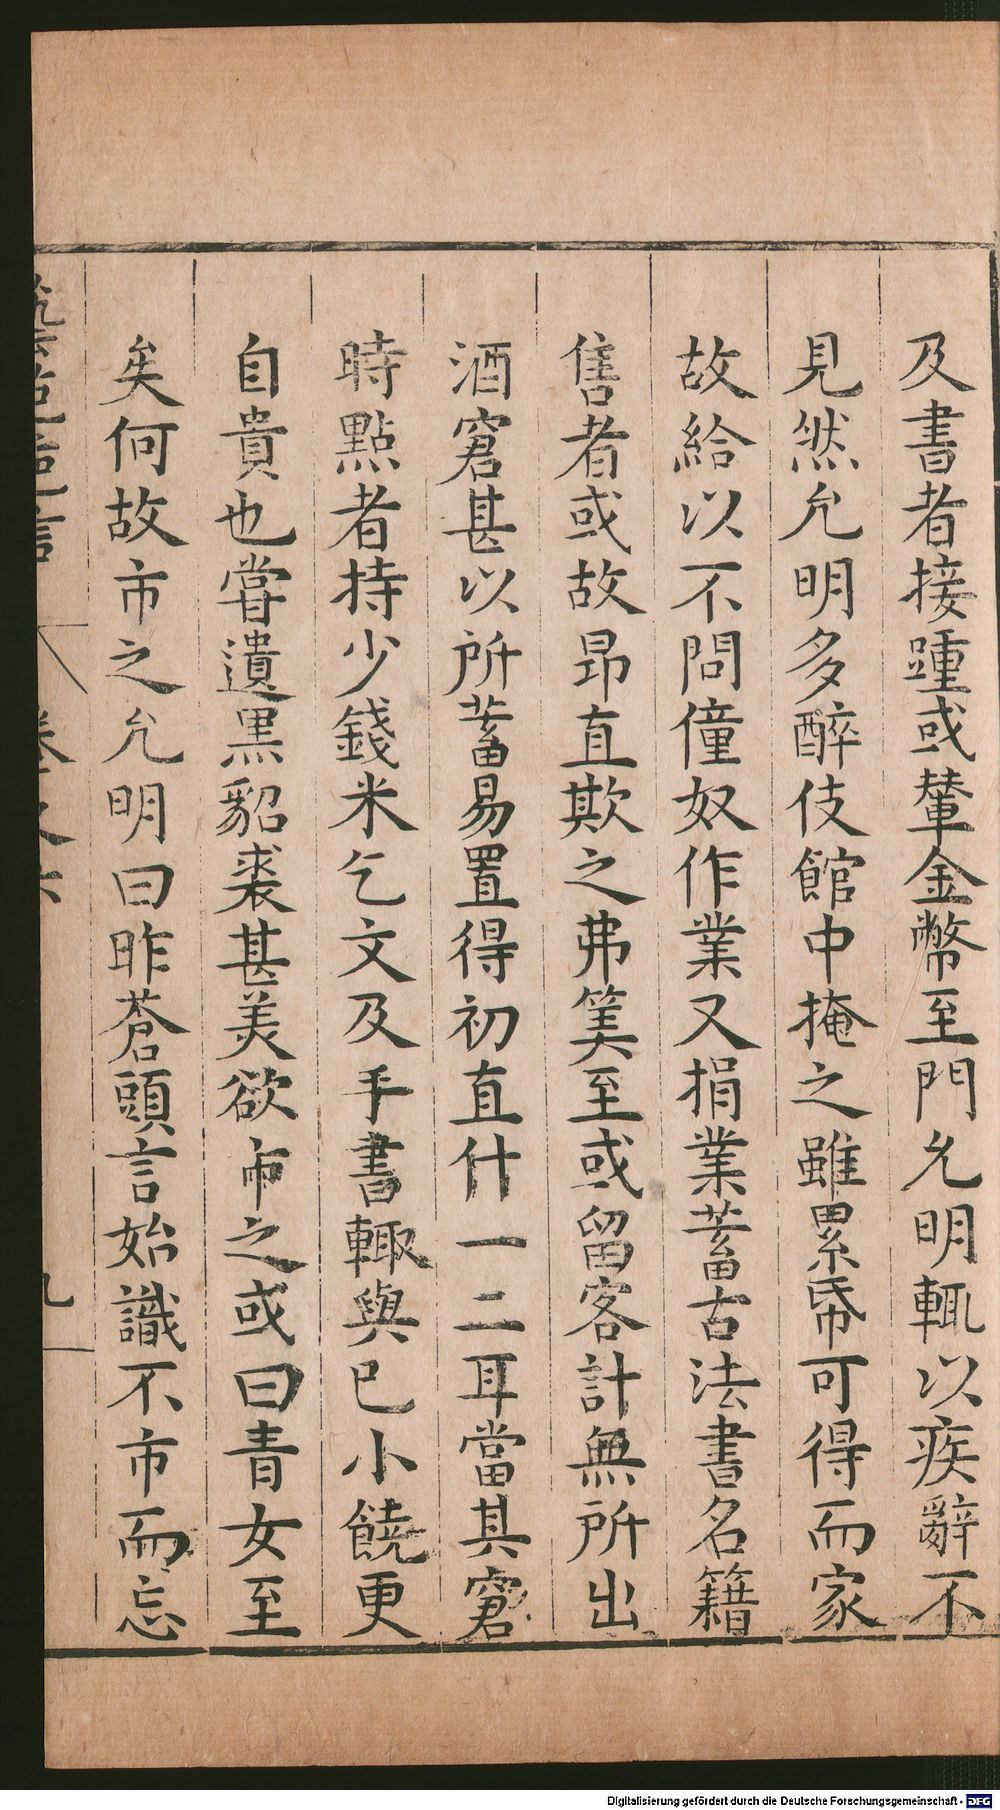 及書者接踵或輦金幣至門允明輒以疾辭不
見然允明多醉伎館中掩之雖累帋可得而家
故給以不問僮奴作業又捐業蓄古法書名籍
售者或故昂直欺之弗筭至或留客計無所出
酒窘甚以所蓄易置得初直什一二耳當其窘
時點者持少錢米乞文及手書輙與已小饒更
自貴也嘗遺黑貂裘甚美欲市之或曰青女至
矣何故市之允明曰昨蒼頭言始識不市而忘
Digitalisierung gefördert durch die Deutsche Forschungsgemeinschaft - DFG